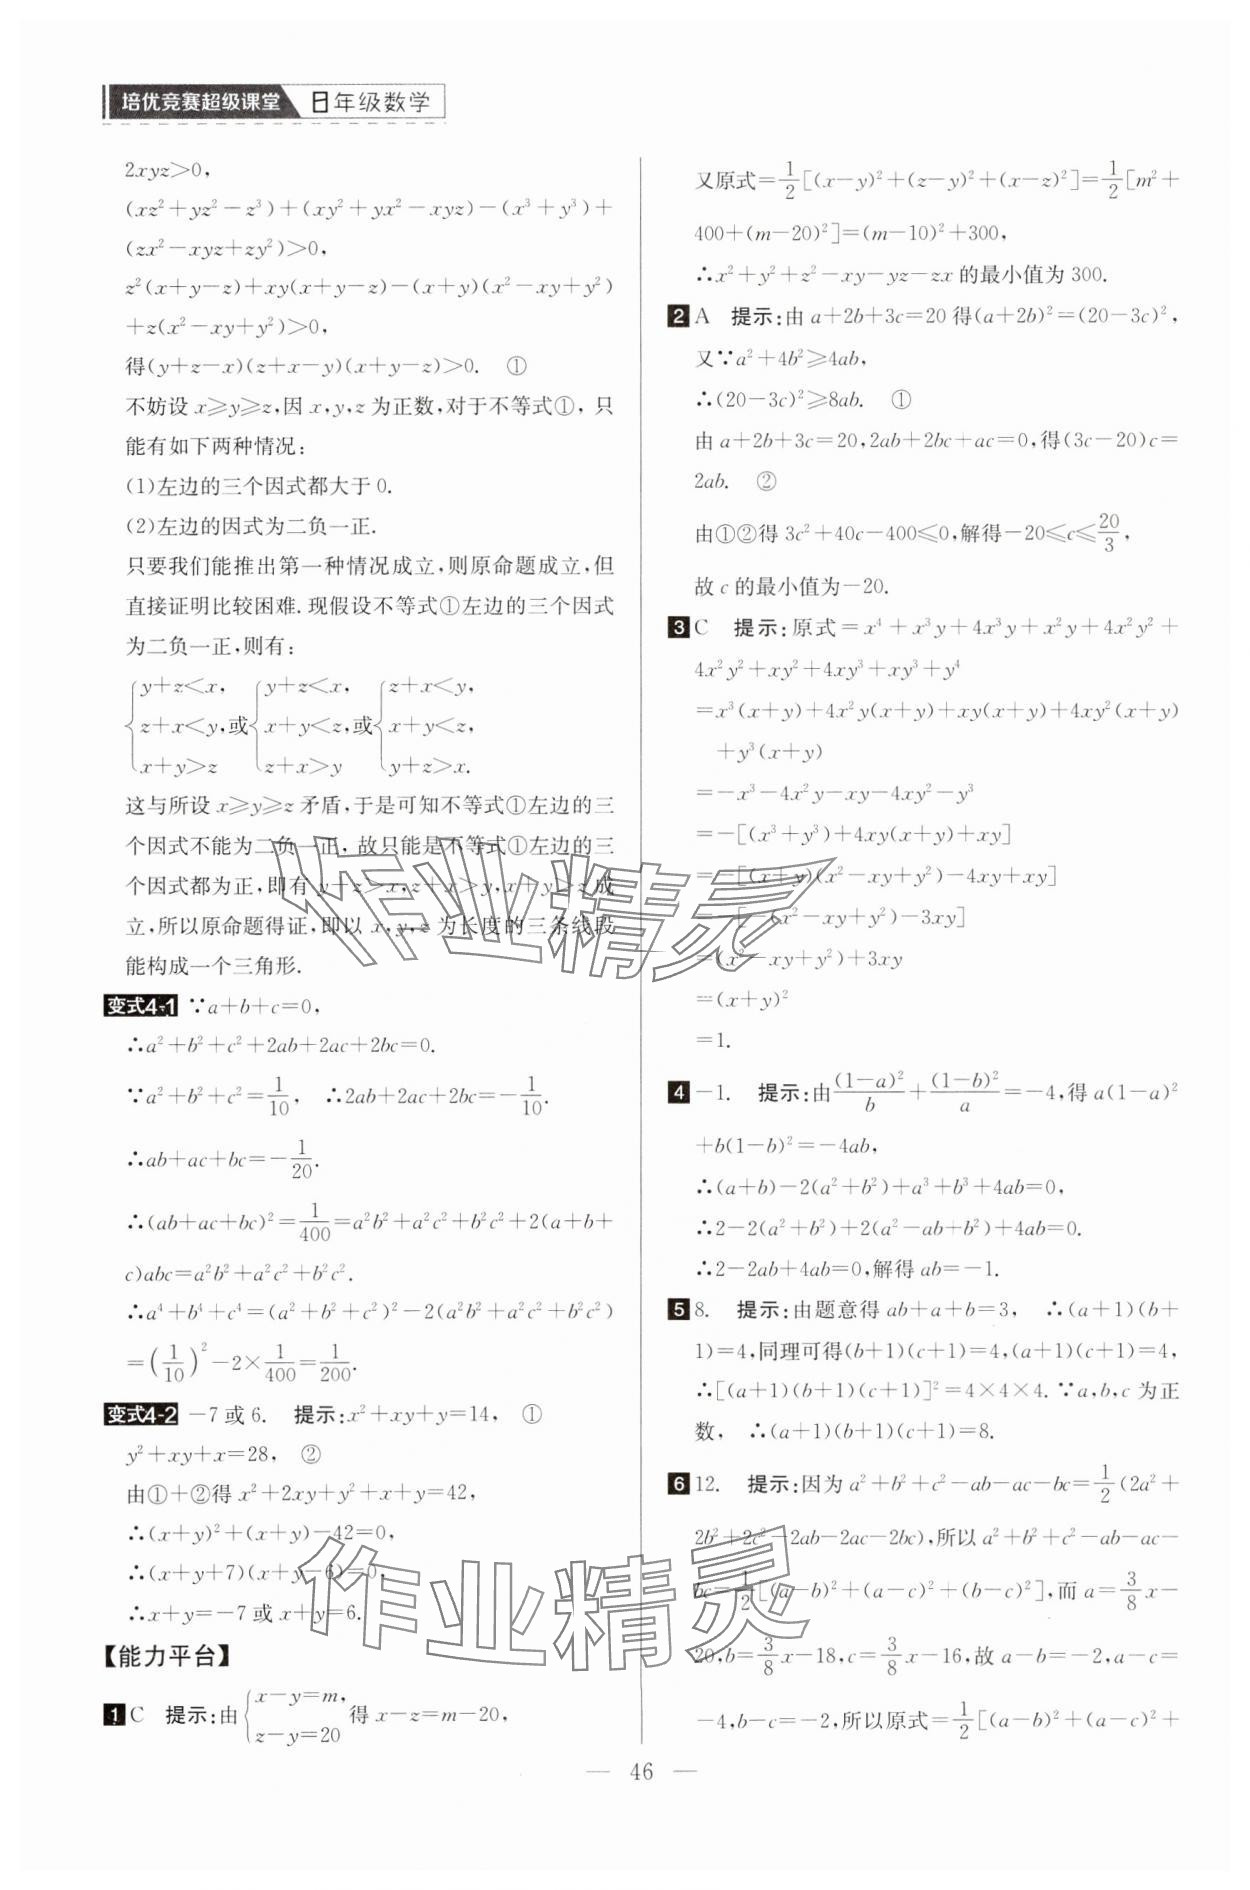 培优竞赛超级课堂 8年级数学
2xyz>0,
(xz²+yz²-z³)+(xy²+yx²-xyz)-(x³+y³)+
(zx²-xyz+zy²)>0,
z²(x+y-z)+xy(x+y-z)-(x+y)(x²-xy+y²)
+z(x²-xy+y²)>0,
得(y+z-x)(z+x-y)(x+y-z)>0. ①
不妨设 x≥y≥z,因 x,y,z 为正数,对于不等式①,只
能有如下两种情况:
(1)左边的三个因式都大于0.
(2)左边的因式为二负一正.
只要我们能推出第一种情况成立,则原命题成立,但
直接证明比较困难.现假设不等式①左边的三个因式
为二负一正,则有:
{y+z<x, z+x<y, x+y>z 或 {y+z<x, x+y<z, z+x>y 或 {z+x<y, x+y<z, y+z>x.
这与所设 x≥y≥z 矛盾,于是可知不等式①左边的三
个因式不能为二负一正,故只能是不等式①左边的三
个因式都为正,即有 y+z>x,z+x>y,x+y>z 成
立,所以原命题得证,即以 x,y,z 为长度的三条线段
能构成一个三角形.
变式4-1 ∵a+b+c=0,
∴a²+b²+c²+2ab+2ac+2bc=0.
∵a²+b²+c²=1/10, ∴2ab+2ac+2bc=-1/10.
∴ab+ac+bc=-1/20.
∴(ab+ac+bc)²=1/400=a²b²+a²c²+b²c²+2(a+b+
c)abc=a²b²+a²c²+b²c².
∴a⁴+b⁴+c⁴=(a²+b²+c²)²-2(a²b²+a²c²+b²c²)
=(1/10)²-2×1/400=1/200.
变式4-2 -7或6. 提示:x²+xy+y=14, ①
y²+xy+x=28, ②
由①+②得 x²+2xy+y²+x+y=42,
∴(x+y)²+(x+y)-42=0,
∴(x+y+7)(x+y-6)=0,
∴x+y=-7或x+y=6.
【能力平台】
1 C 提示:由{x-y=m, z-y=20 得 x-z=m-20,
又原式=1/2[(x-y)²+(z-y)²+(x-z)²]=1/2[m²+
400+(m-20)²]=(m-10)²+300,
∴x²+y²+z²-xy-yz-zx的最小值为300.
2 A 提示:由 a+2b+3c=20 得(a+2b)²=(20-3c)²,
又∵a²+4b²≥4ab,
∴(20-3c)²≥8ab. ①
由 a+2b+3c=20,2ab+2bc+ac=0,得(3c-20)c=
2ab. ②
由①②得 3c²+40c-400≤0,解得-20≤c≤20/3,
故 c 的最小值为-20.
3 C 提示:原式=x⁴+x³y+4x³y+x²y+4x²y²+
4x²y²+xy²+4xy³+xy³+y⁴
=x³(x+y)+4x²y(x+y)+xy(x+y)+4xy²(x+y)
+y³(x+y)
=-x³-4x²y-xy-4xy²-y³
=-[(x³+y³)+4xy(x+y)+xy]
=-[(x+y)(x²-xy+y²)-4xy+xy]
=-[-(x²-xy+y²)-3xy]
=(x²-xy+y²)+3xy
=(x+y)²
=1.
4 -1. 提示:由(1-a)²/b+(1-b)²/a=-4,得 a(1-a)²
+b(1-b)²=-4ab,
∴(a+b)-2(a²+b²)+a³+b³+4ab=0,
∴2-2(a²+b²)+2(a²-ab+b²)+4ab=0.
∴2-2ab+4ab=0,解得 ab=-1.
5 8. 提示:由题意得 ab+a+b=3, ∴(a+1)(b+
1)=4,同理可得(b+1)(c+1)=4,(a+1)(c+1)=4,
∴[(a+1)(b+1)(c+1)]²=4×4×4.∵a,b,c 为正
数, ∴(a+1)(b+1)(c+1)=8.
6 12. 提示:因为 a²+b²+c²-ab-ac-bc=1/2(2a²+
2b²+2c²-2ab-2ac-2bc),所以 a²+b²+c²-ab-ac-
bc=1/2[(a-b)²+(a-c)²+(b-c)²],而 a=3/8x-
20,b=3/8x-18,c=3/8x-16,故 a-b=-2,a-c=
-4,b-c=-2,所以原式=1/2[(a-b)²+(a-c)²+
— 46 —
作业精灵
作业精灵